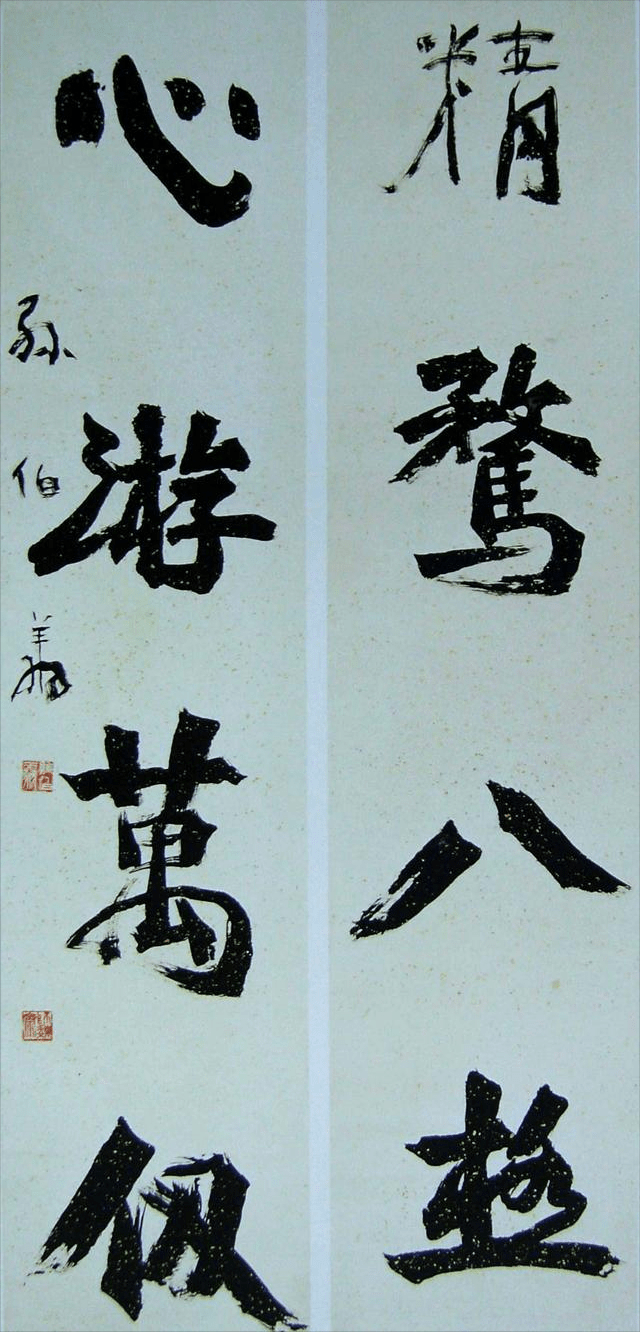 精騖八極
心游萬仞
孫伯翔